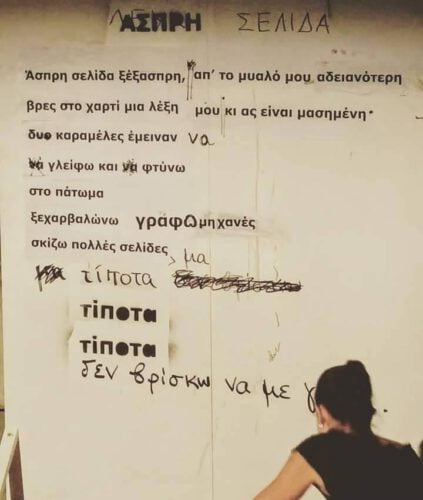 ΑΣΠΡΗ ΣΕΛΙΔΑ
Άσπρη σελίδα ξέξασπρη, απ' το μυαλό μου αδειανότερη
βρες στο χαρτί μια λέξη μου κι ας είναι μασημένη·
δυο καραμέλες έμειναν να
να γλείφω και να φτύνω
στο πάτωμα
ξεχαρβαλώνω γράφΩ μηχανές
σκίζω πολλές σελίδες, μα
τίποτα
τίποτα
τίποτα
δεν βρίσκω να με